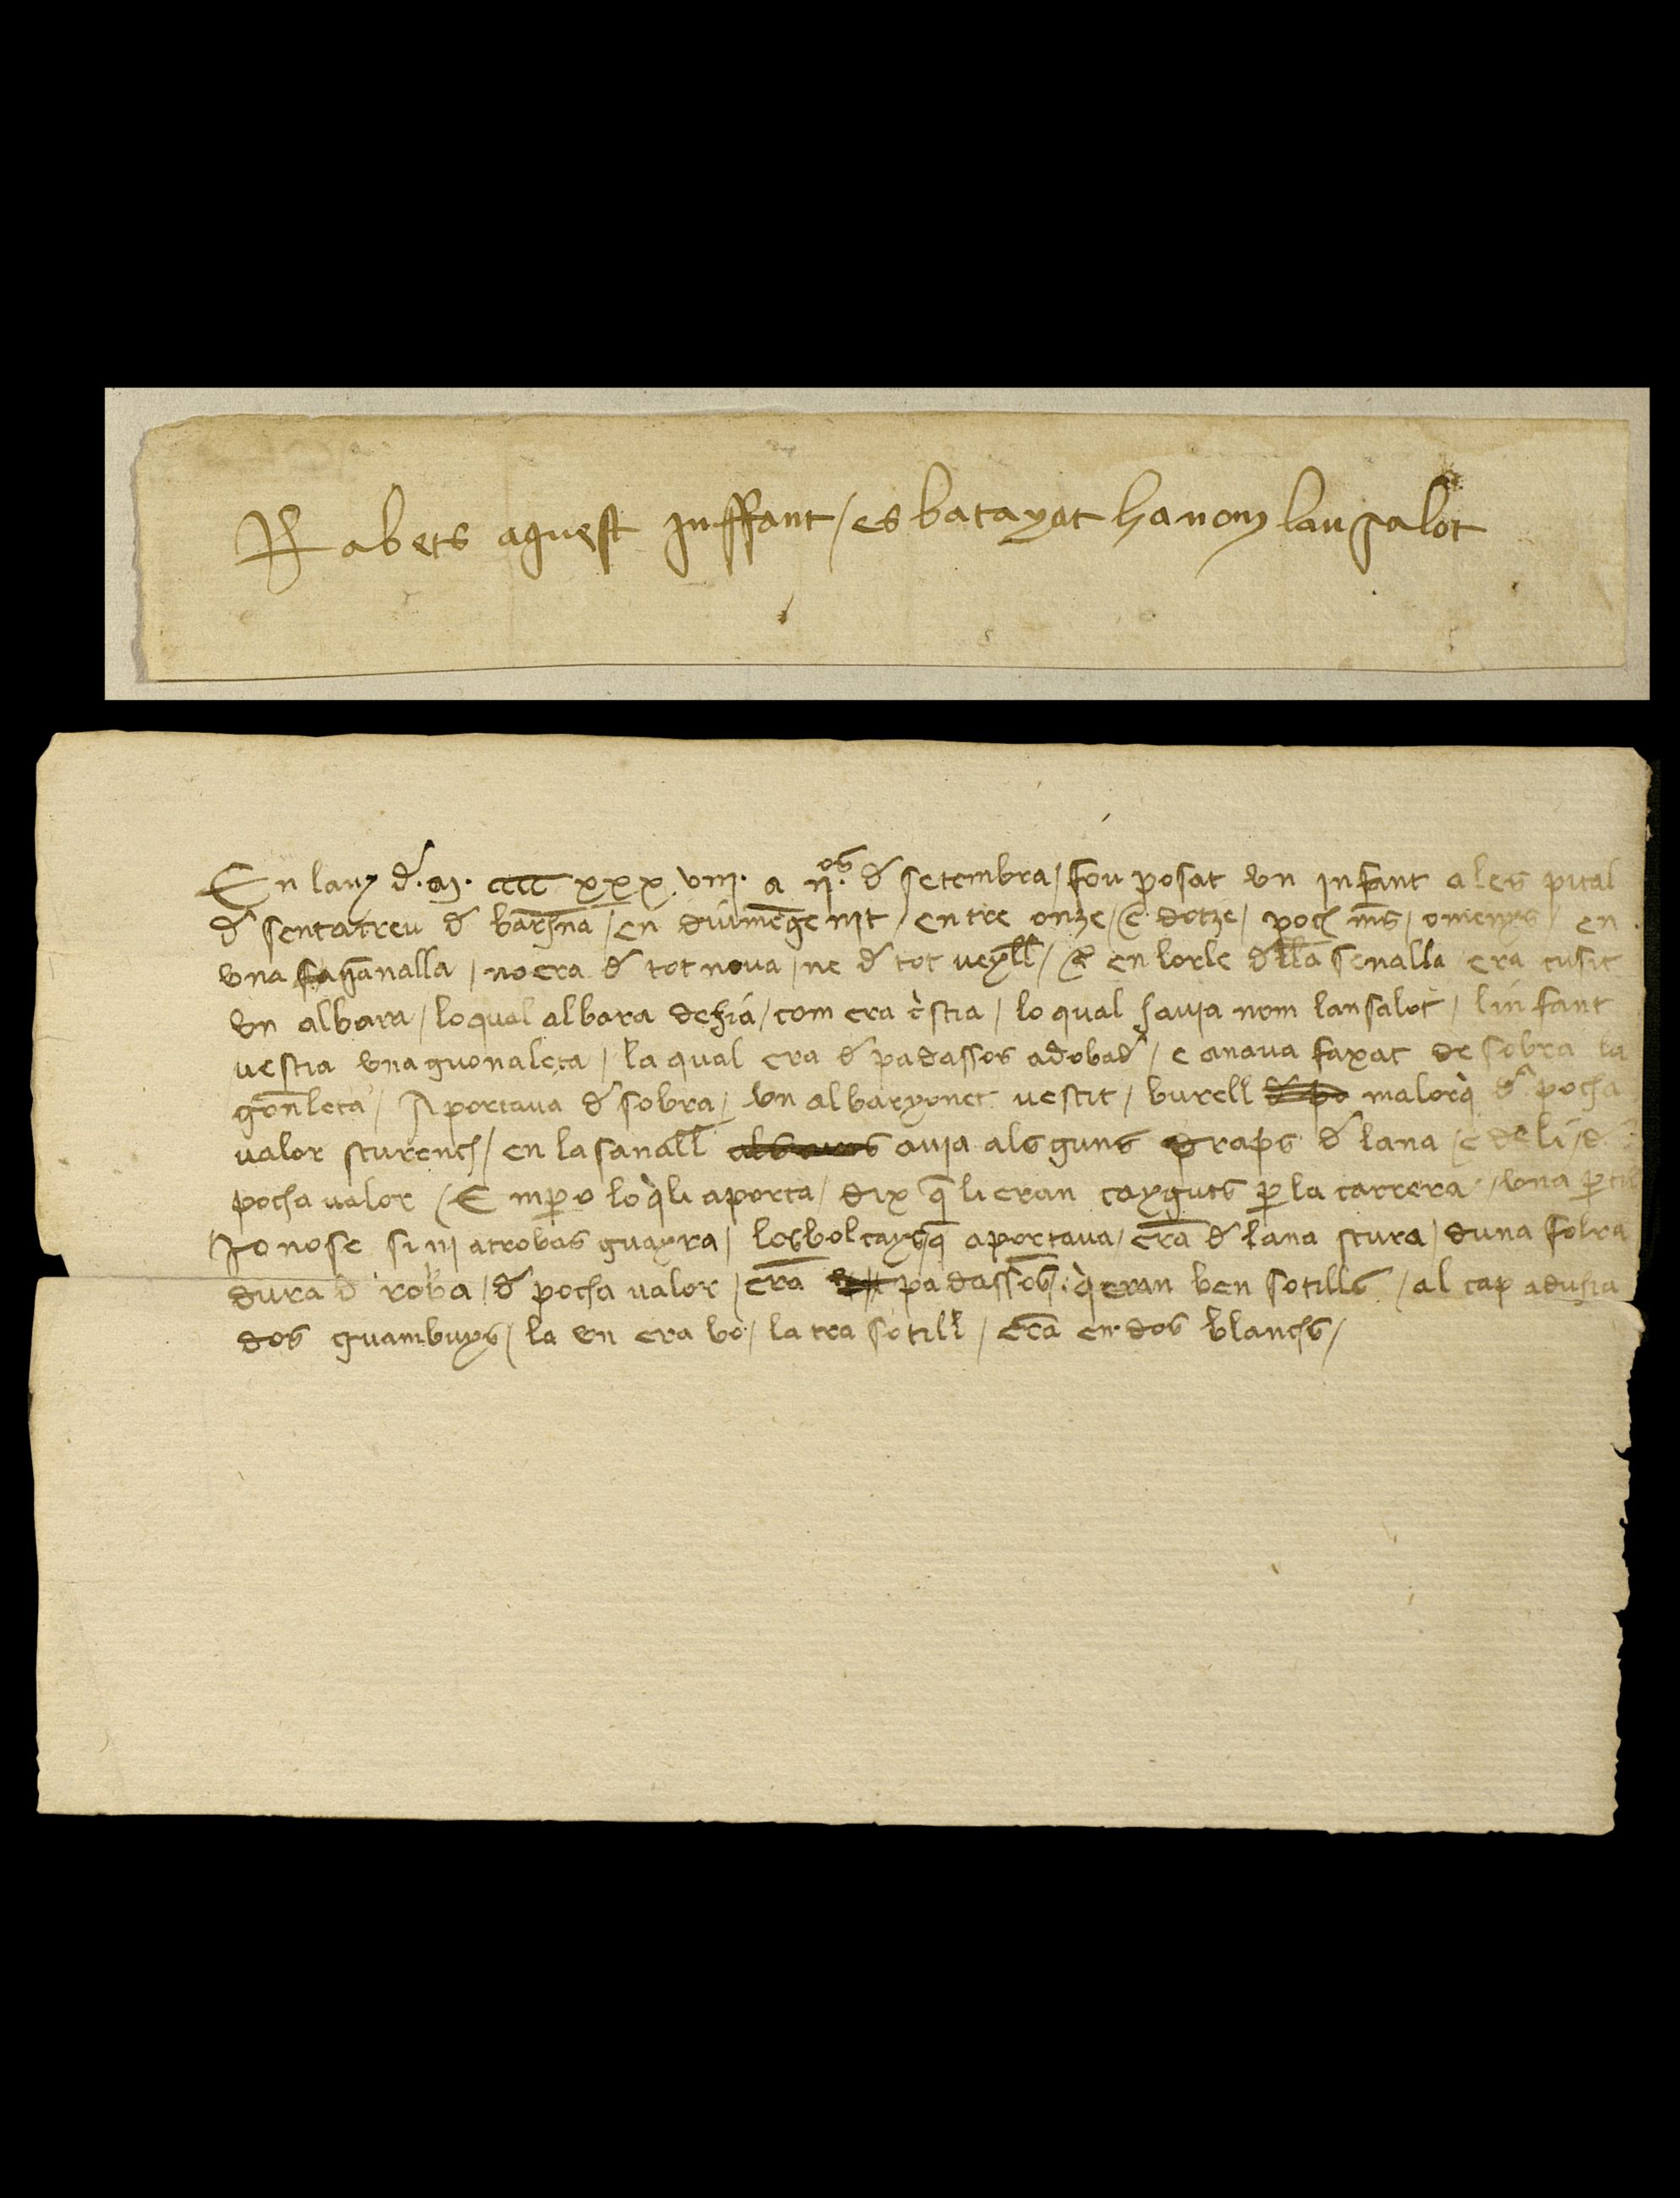 R abets aquest Jnffant / es batayat ha nom lansalot
En lany d. M. cccc xxx viii. a ii.os d setembra / fou posat vn infant a les pital
d senta creu d barchna / en diumẽge nit / entre onze / e dotze / poch mẽs / o menys / en
vna sanalla / no era d tot nova / ne d tot veyll / E en lorle dlla senalla era cusit
vn albara / lo qual albara dehia / com era cstia / lo qual havia nom lansalot / linfant
vestia vna guonaleta / la qual era d padassos adobad / e anava faxat de sobra la
gonleta / Aportava d sobra / vn albaryonet vestit / burell malorq d pocha
valor scurench / en la sanall avia als guns draps d lana / e de li / d
pocha valor / E mpo lo q li aporta / dix q li eran cayguts p la carrera / vna ptil
Jo no se si ni atrobas guayra / los bolcays q aportava / erã d lana scura / duna folra
dura d roba / d pocha valor / erã padassos. q eran ben sotills / al cap aduhia
dos guambuys / la vn era bo / la tra sotill / erã en dos blanchs /